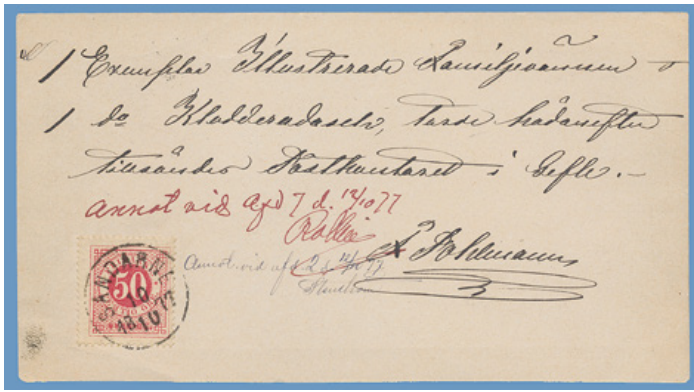 1 Exemplar Illustrerade Familjevännen o
1 do Kladderadasch, torde hädanefter
tillsändas Postkontoret i Gefle. –
Annot vid Afd 7 d. 12/10 77
Annot. vid afd 2 d 12/10 77
SANDARNE
10
18 10 77
50